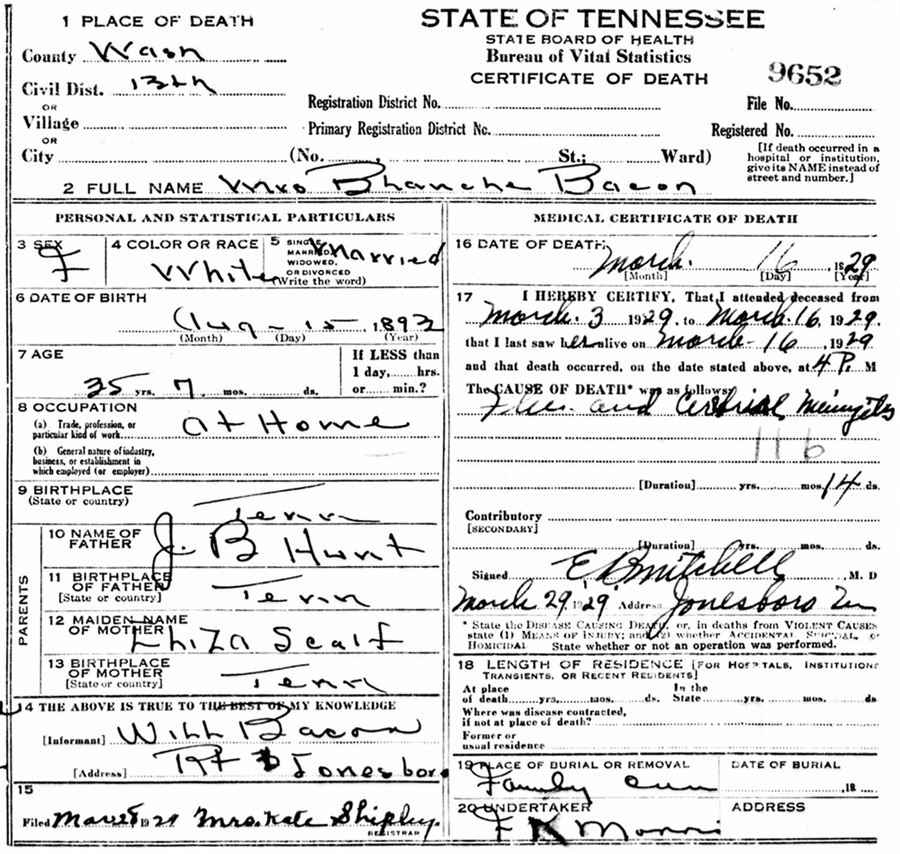 STATE OF TENNESSEE
STATE BOARD OF HEALTH
Bureau of Vital Statistics
CERTIFICATE OF DEATH
9652
1 PLACE OF DEATH
County Wash
Civil Dist. 13th
OR
Village
OR
City (No. , St.; Ward)
Registration District No. File No.
Primary Registration District No. Registered No.
[If death occurred in a
hospital or institution,
give its NAME instead of
street and number.]
2 FULL NAME Mrs Bhanche Bacon
PERSONAL AND STATISTICAL PARTICULARS
3 SEX
F
4 COLOR OR RACE
White
5 SINGLE
MARRIED,
WIDOWED,
OR DIVORCED
(Write the word)
Married
6 DATE OF BIRTH
Aug - 15 1893
(Month) (Day) (Year)
7 AGE
35 yrs. 7 mos. ds.
If LESS than
1 day, hrs.
or min.?
8 OCCUPATION
(a) Trade, profession, or
particular kind of work
at Home
(b) General nature of industry,
business, or establishment in
which employed (or employer)
9 BIRTHPLACE
(State or country)
Tenn
PARENTS
10 NAME OF
FATHER
J. B Hunt
11 BIRTHPLACE
OF FATHER
[State or country]
Tenn
12 MAIDEN NAME
OF MOTHER
Scalf
13 BIRTHPLACE
OF MOTHER
[State or country]
Tenn
14 THE ABOVE IS TRUE TO THE BEST OF MY KNOWLEDGE
[Informant] Will Bacon
[Address] Rt Jonesboro
15
Filed 192 Mrs. Kate Shipley
REGISTRAR
MEDICAL CERTIFICATE OF DEATH
16 DATE OF DEATH
March. 16 , 1929
[Month] [Day] [Year]
17 I HEREBY CERTIFY, That I attended deceased from
March. 3 1929, to March. 16, 1929.
that I last saw her alive on March - 16 1929
and that death occurred, on the date stated above, at 4 P. M
The CAUSE OF DEATH* was as follows:
Flu. and
116
[Duration] yrs. mos. 14 ds.
Contributory
[SECONDARY]
[Duration] yrs. mos. ds.
Signed E. B Mitchell M. D
March 29 1929 Address Jonesboro
* State the DISEASE CAUSING DEATH, or, in deaths from VIOLENT CAUSES
state (1) MEANS OF INJURY; and (2) whether ACCIDENTAL SUICIDAL, or
HOMICIDAL State whether or not an operation was performed.
18 LENGTH OF RESIDENCE [FOR HOSPITALS, INSTITUTIONS
TRANSIENTS, OR RECENT RESIDENTS]
At place In the
of death yrs. mos. ds. State yrs. mos. ds.
Where was disease contracted,
if not at place of death?
Former or
usual residence
19 PLACE OF BURIAL OR REMOVAL
Family Cem
DATE OF BURIAL
, 18
20 UNDERTAKER
F K Morris
ADDRESS